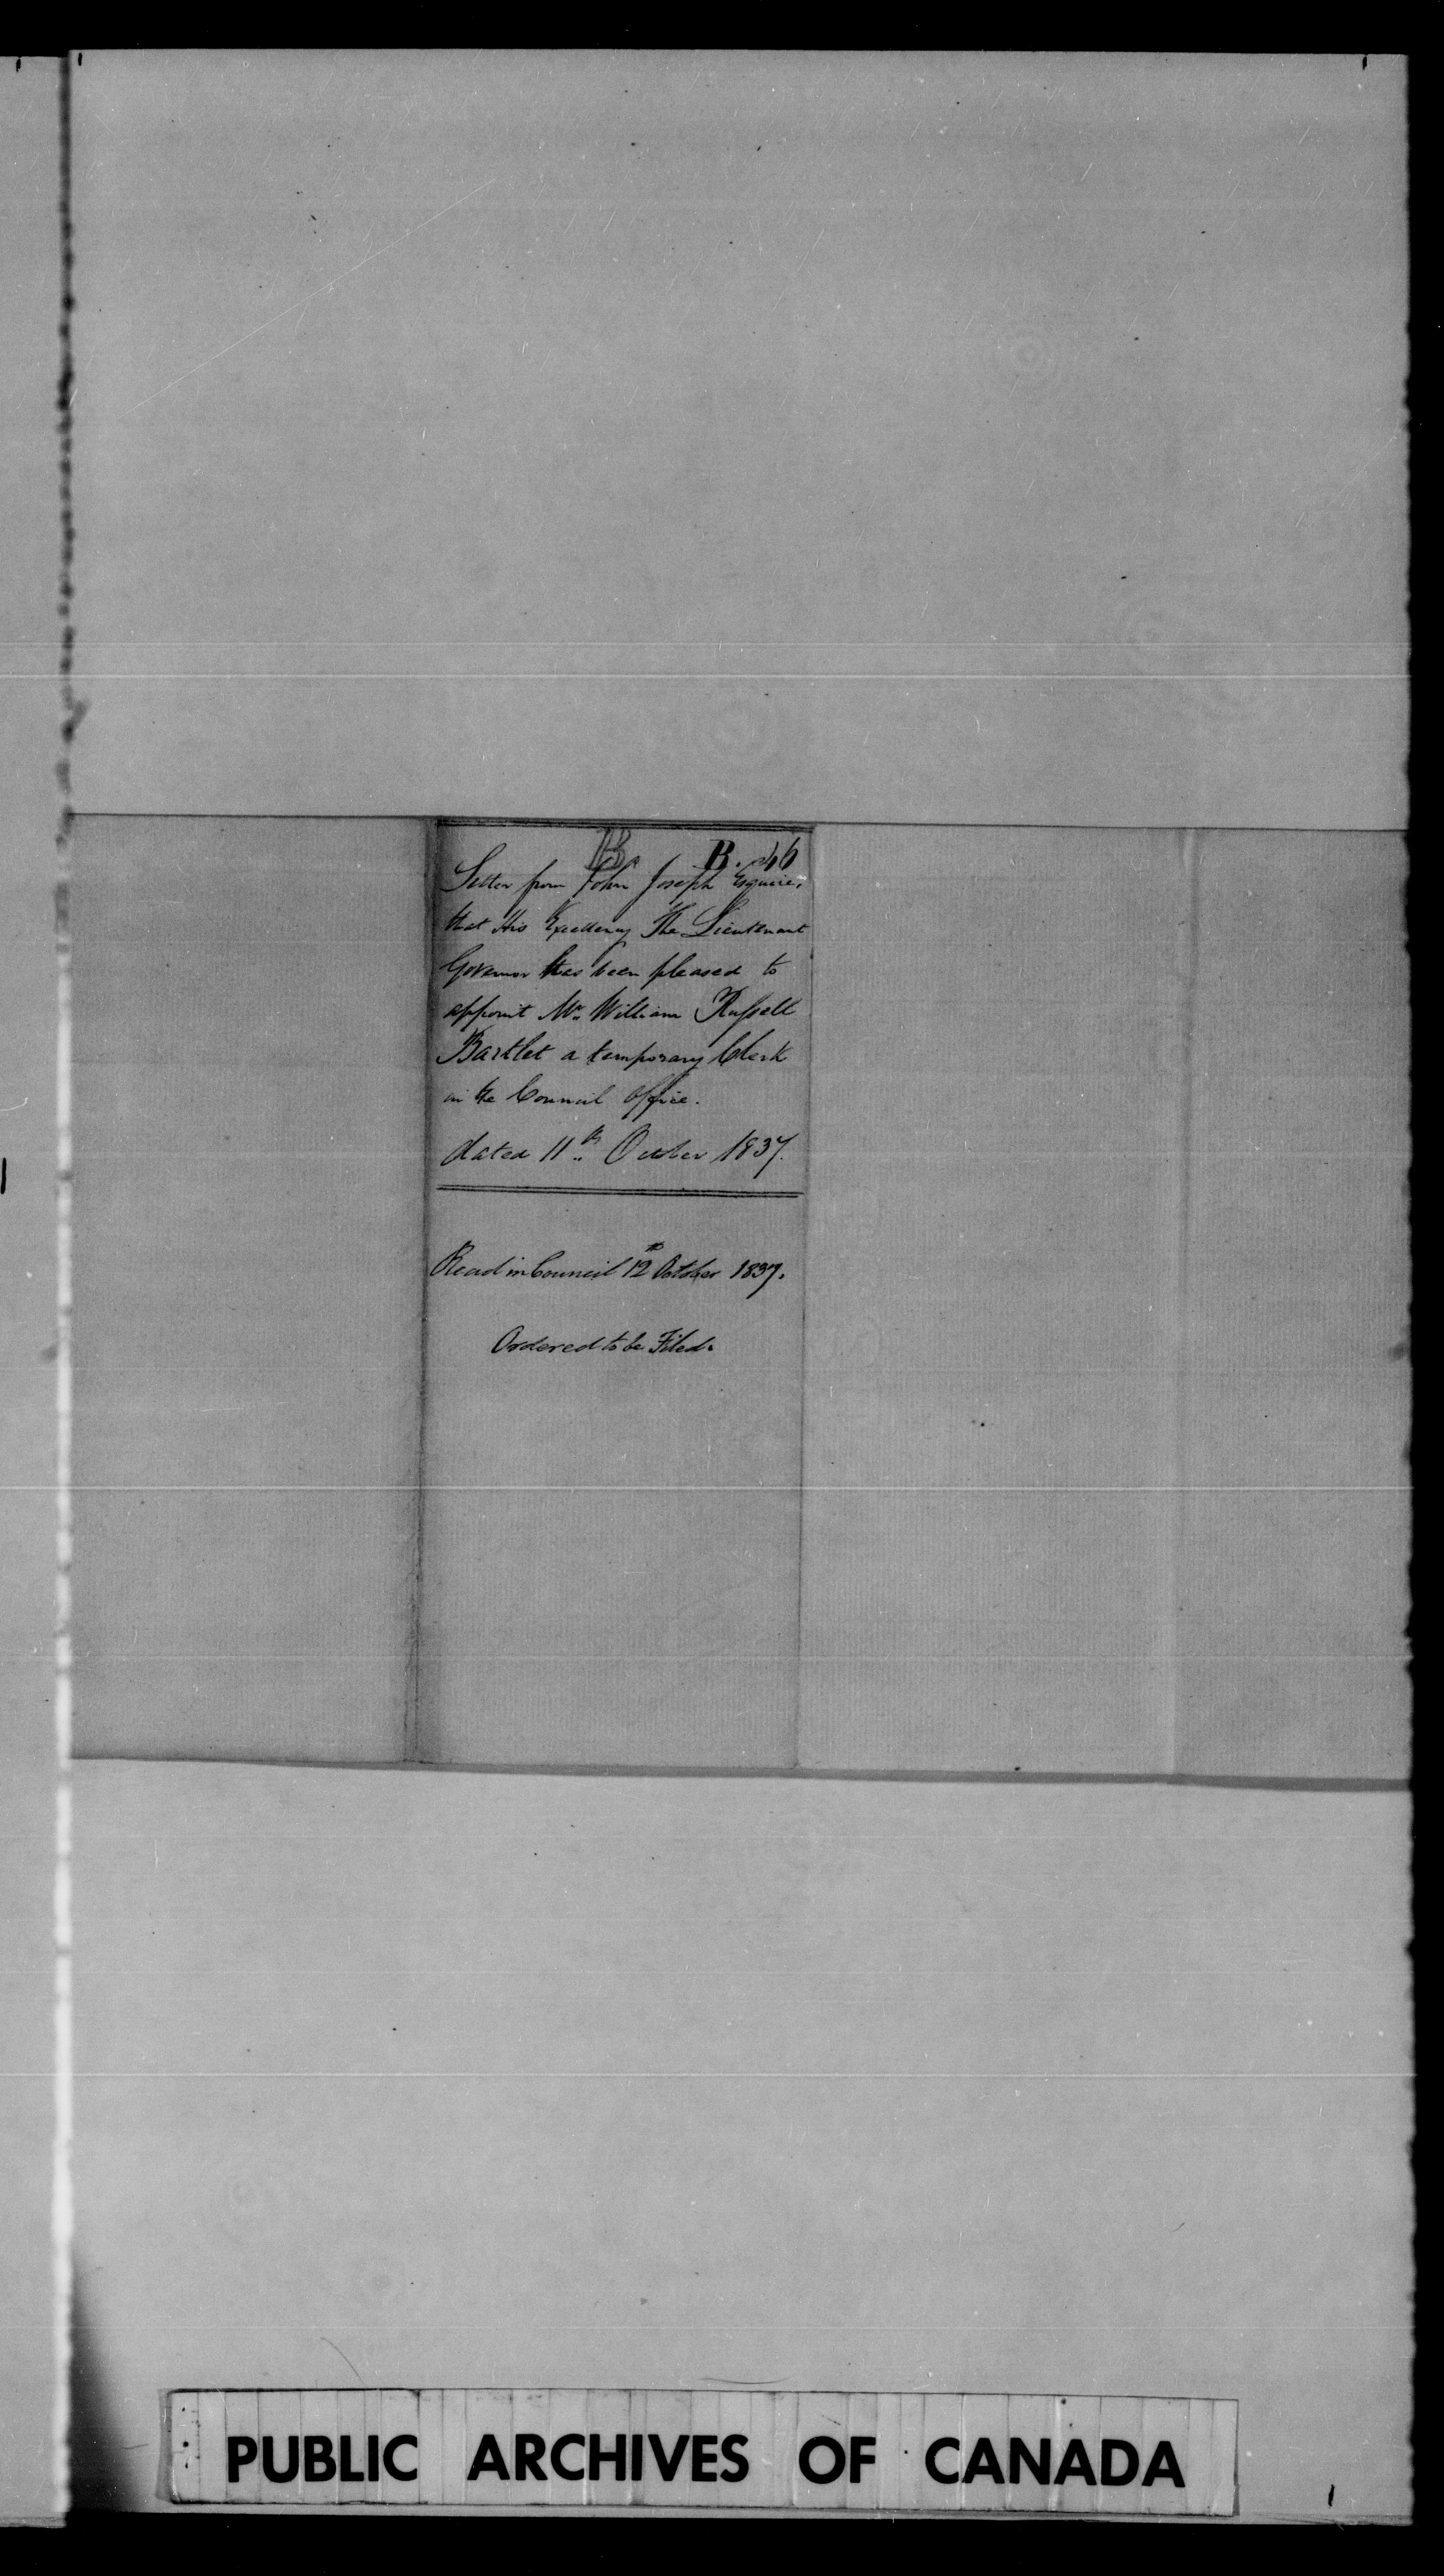 B. B. 46
Letter from John Joseph Esquire,
that His Excellency The Lieutenant
Governor Has been pleased to
appoint Mr. William Russell
Bartlet a temporary Clerk
in the Council Office.
dated 11th October 1837.
Read in Council 12th October 1837.
Ordered to be Filed.
PUBLIC ARCHIVES OF CANADA